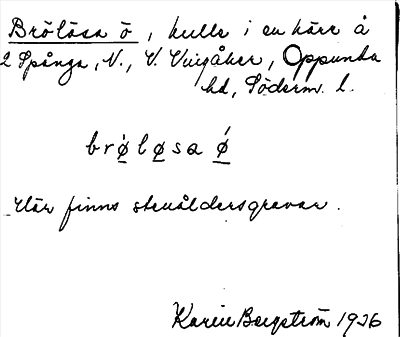 Brölösa ö, kulle i en kärr å
2 Spånga, N., V. Vingåker, Oppunda
hd, Söderm. l.
brǿ̲lø̲sa ǿ̲
Här finns stenåldersgravar.
Karin Bergström 1936